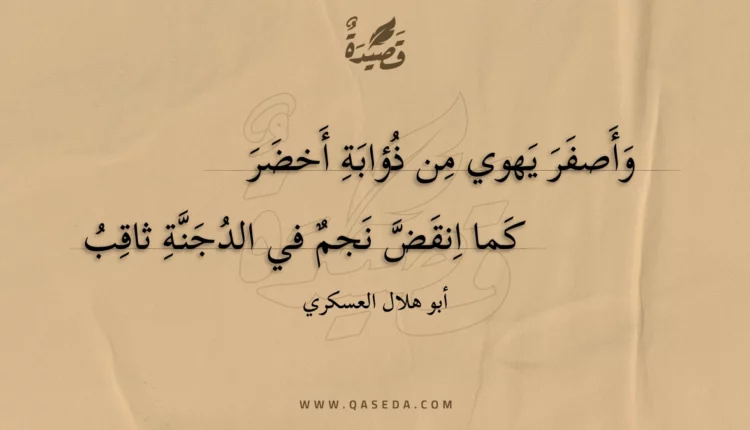 قَصِيْدَةٌ
وَأَصفَرَ يَهوي مِن ذُؤابَةِ أَخضَرَ
كَما اِنقَضَّ نَجمٌ في الدُجَنَّةِ ثاقِبُ
أبو هلال العسكري
WWW.QASEDA.COM